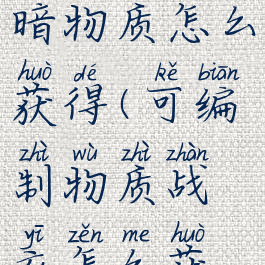 暗物质怎么
huò dé kě biān
获得(可编
zhì wù zhì zhàn
制物质战
yī zěn me huò
怎么获